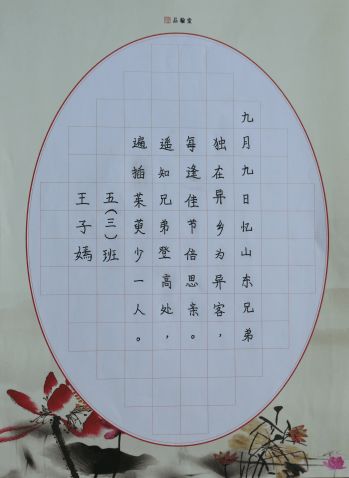 品翰堂
九月九日忆山东兄弟
独在异乡为异客，
每逢佳节倍思亲。
遥知兄弟登高处，
遍插茱萸少一人。
五（三）班
王子嫣